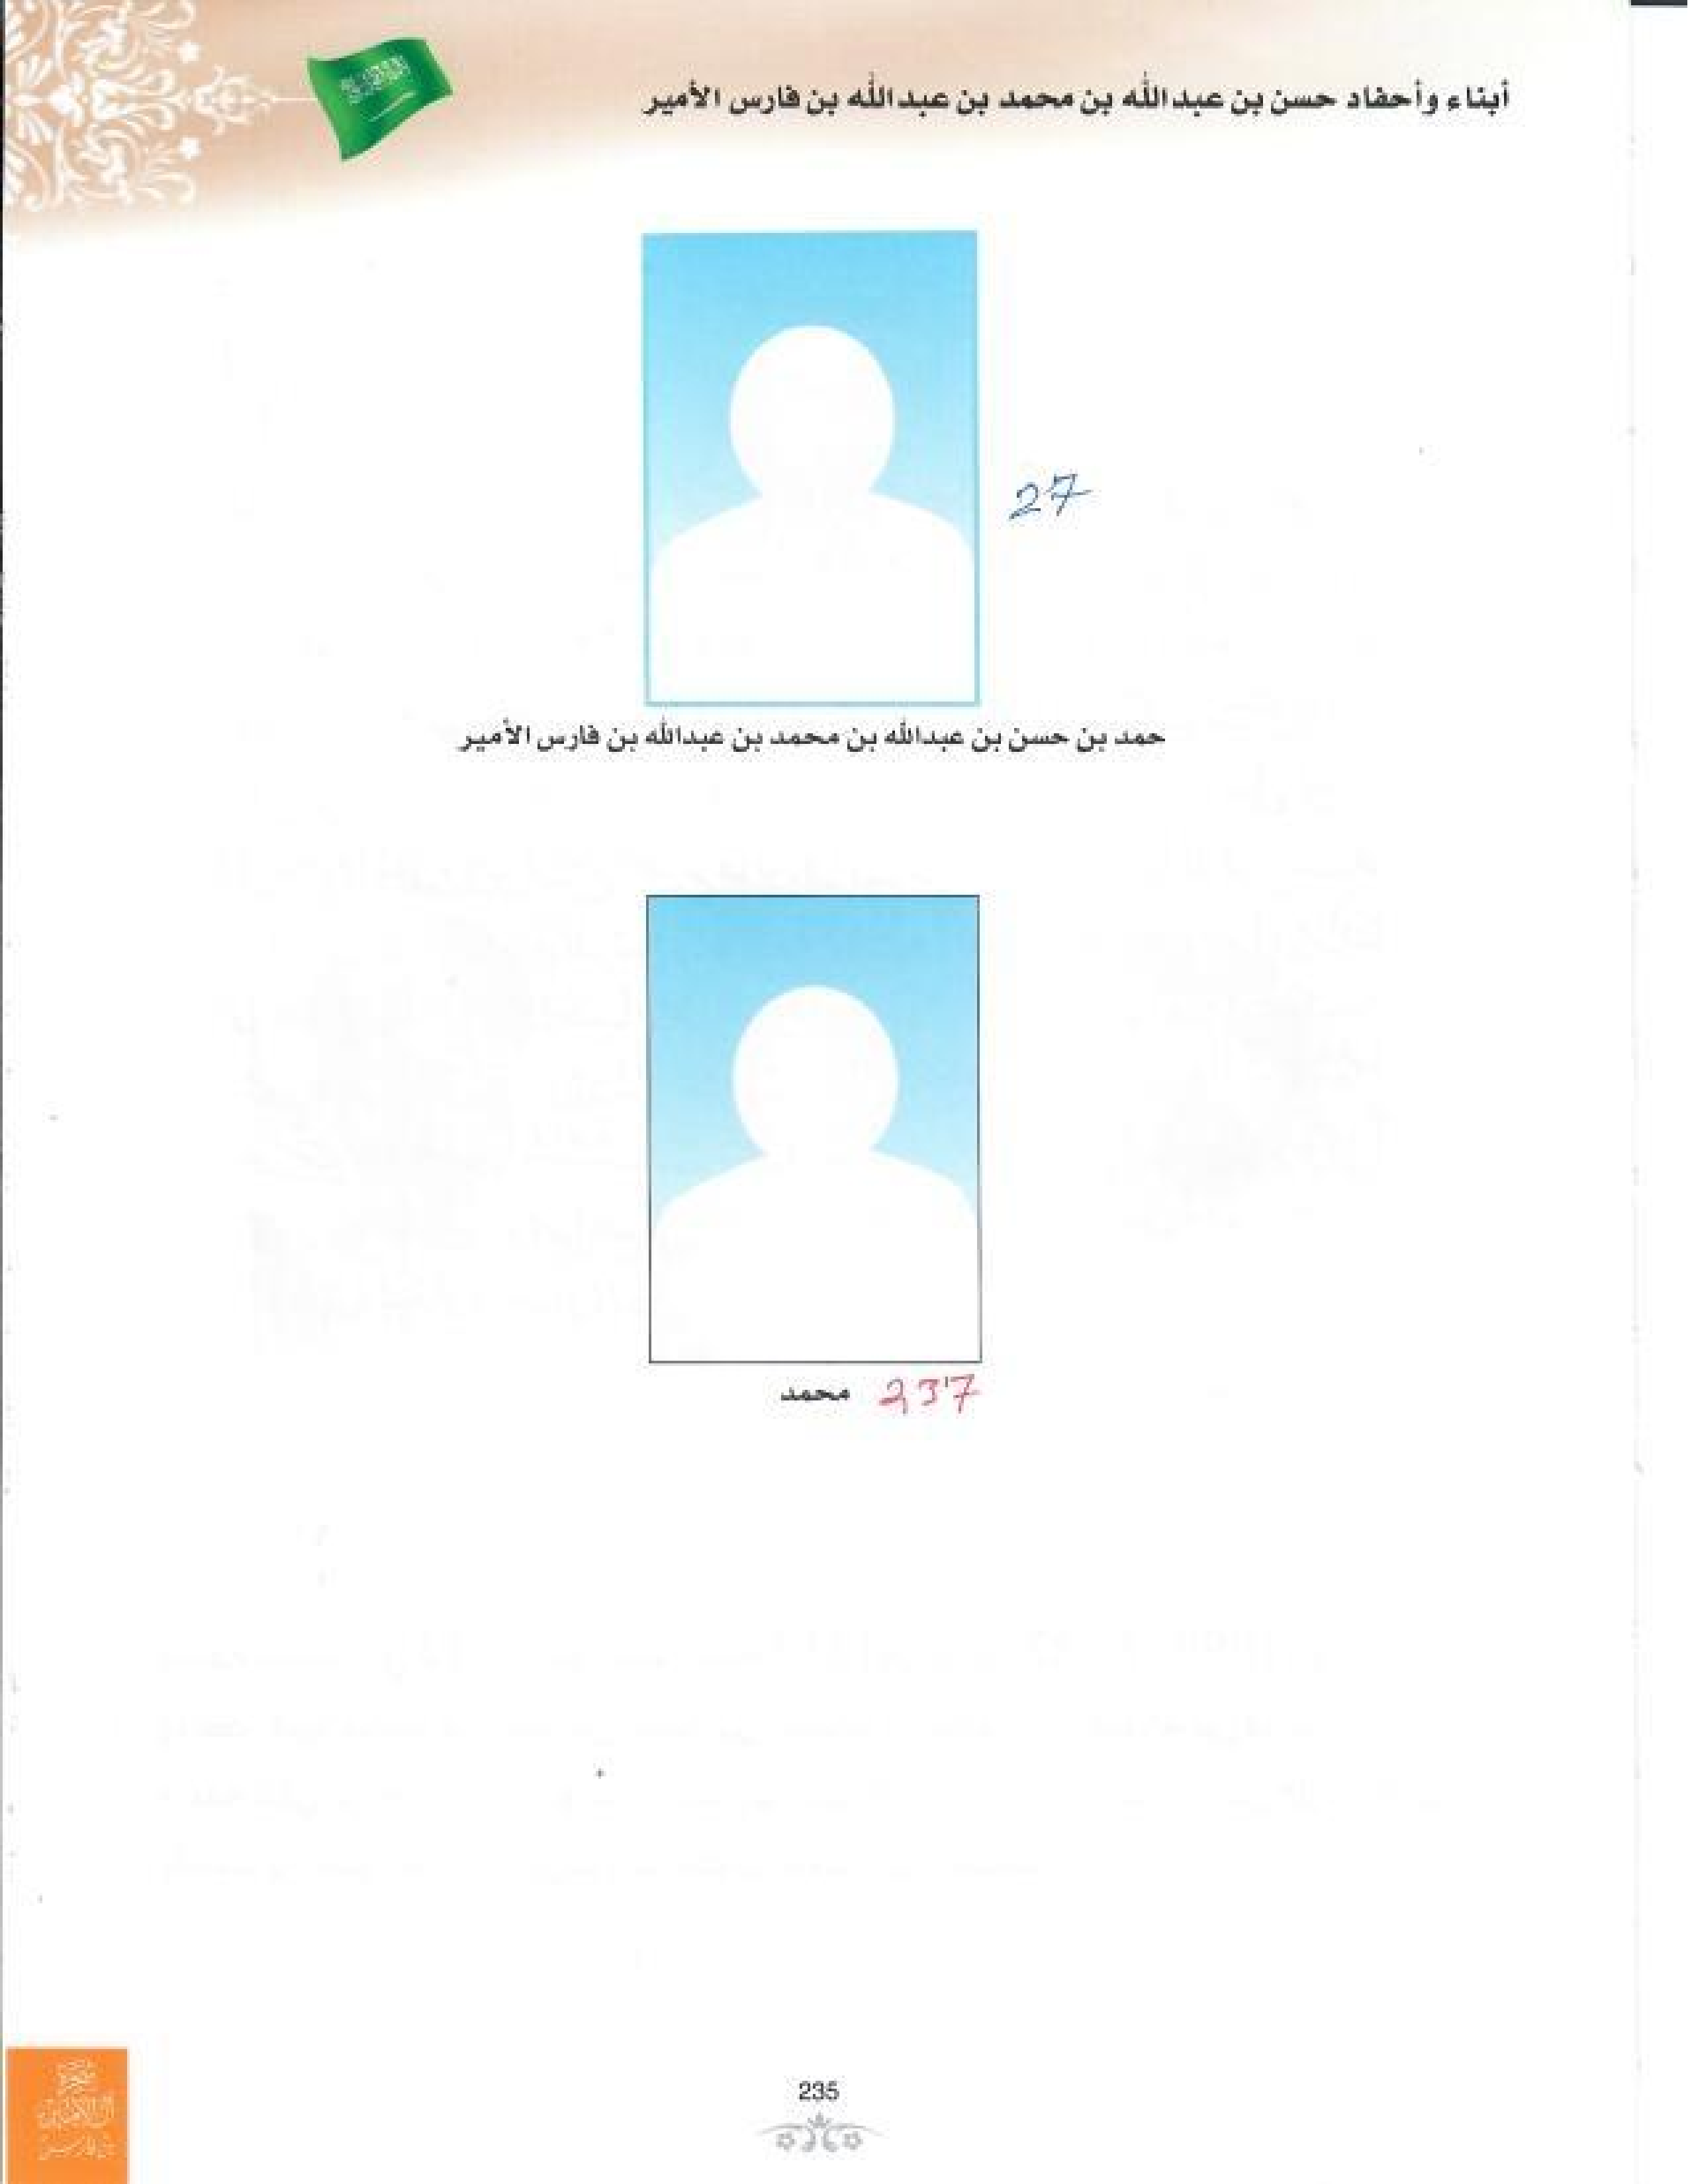 أبناء وأحفاد حسن بن عبدالله بن محمد بن عبدالله بن فارس الأمير
27
حمد بن حسن بن عبدالله بن محمد بن عبدالله بن فارس الأمير
محمد 237
235
شجرة
آل الأمير
بن فارس